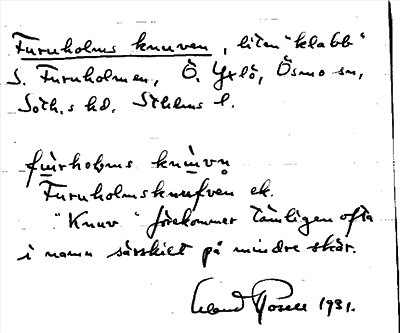 Furuholms knuven, liten "klabb"
S. Furuholmen, Ö. Yxlö, Ösmo sn,
Soth.s hd. Sthlms l.
fùrholms knùvn̥
Furuholmsknufven ek.
"Knuv" förekommer tämligen ofta
i namn särskilt på mindre skär.
1931.